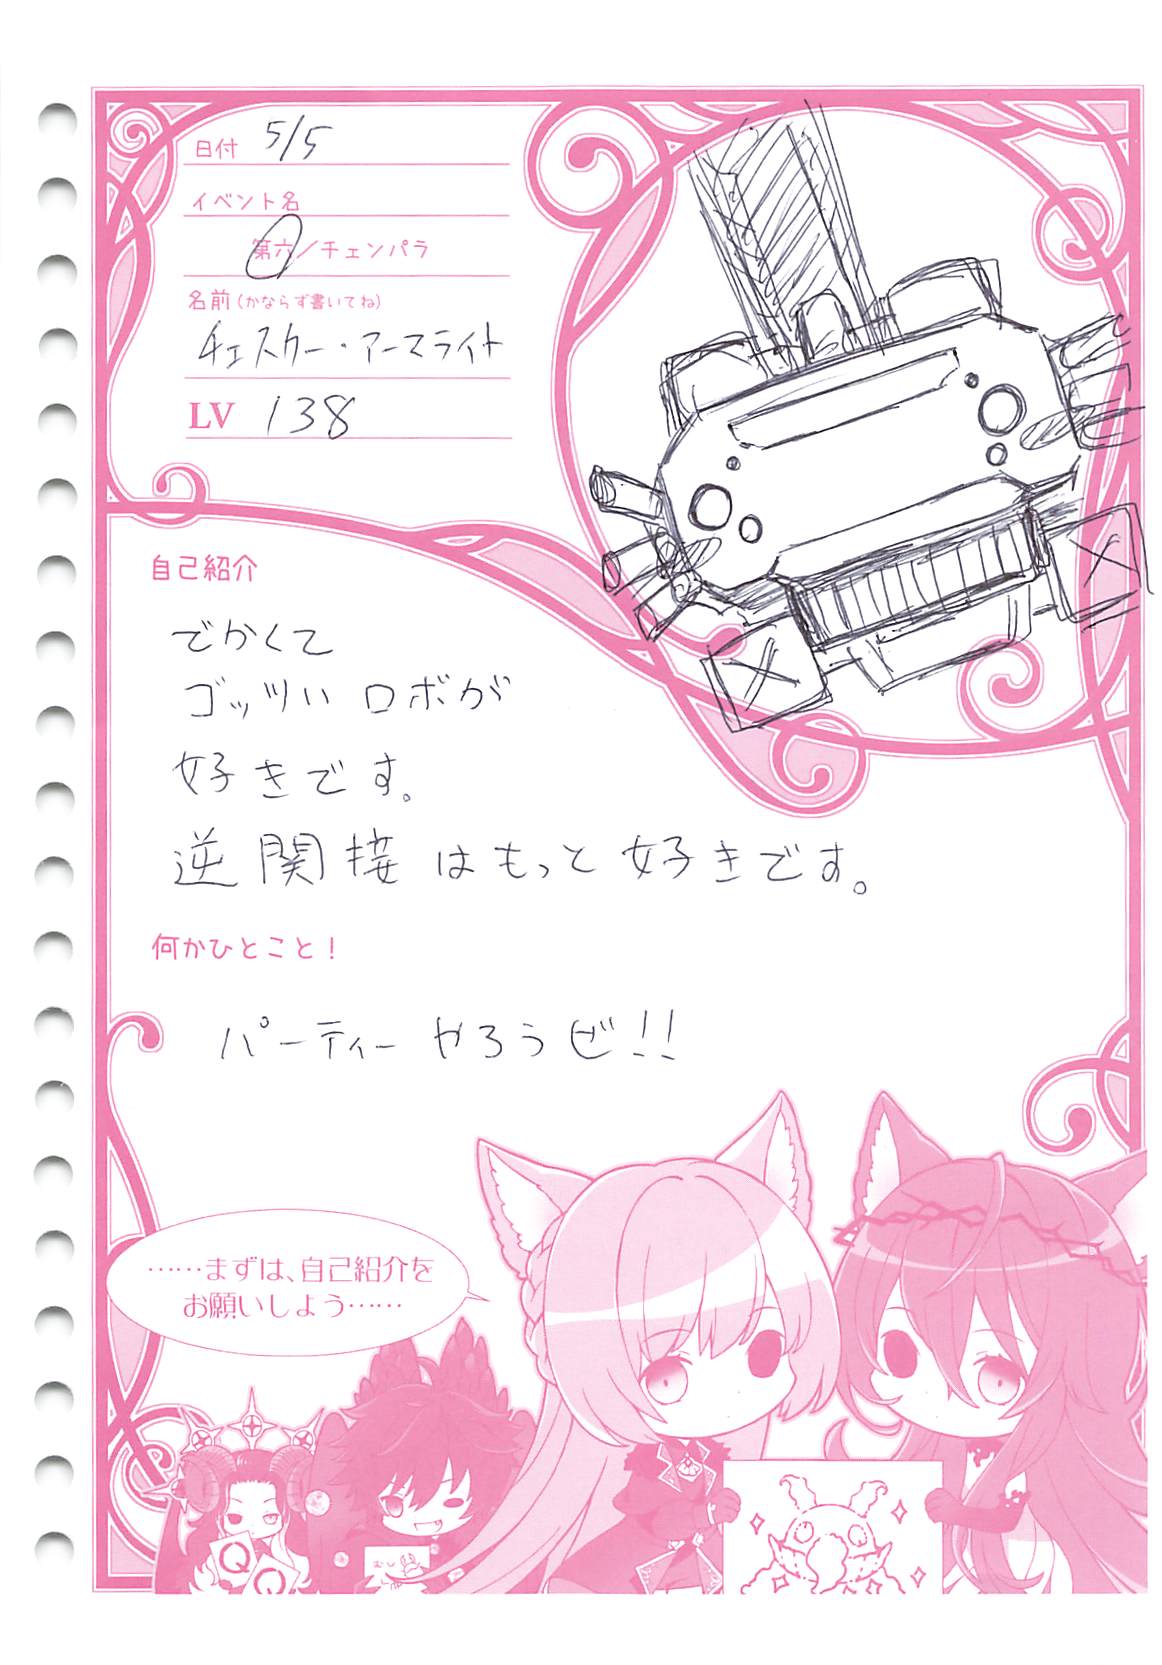 日付 5/5
イベント名
第六/チェンパラ
名前(かならず書いてね)
チェスカー・アーマライト
LV 138
自己紹介
でかくて
ゴッツい ロボが
好きです。
逆関接はもっと好きです。
何かひとこと!
パーティーやろうぜ!!
……まずは、自己紹介を
お願いしよう……
Q
Q